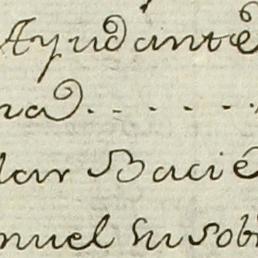 Ayudante
na) . . . . . .
lar Bacie
nuel su sobr